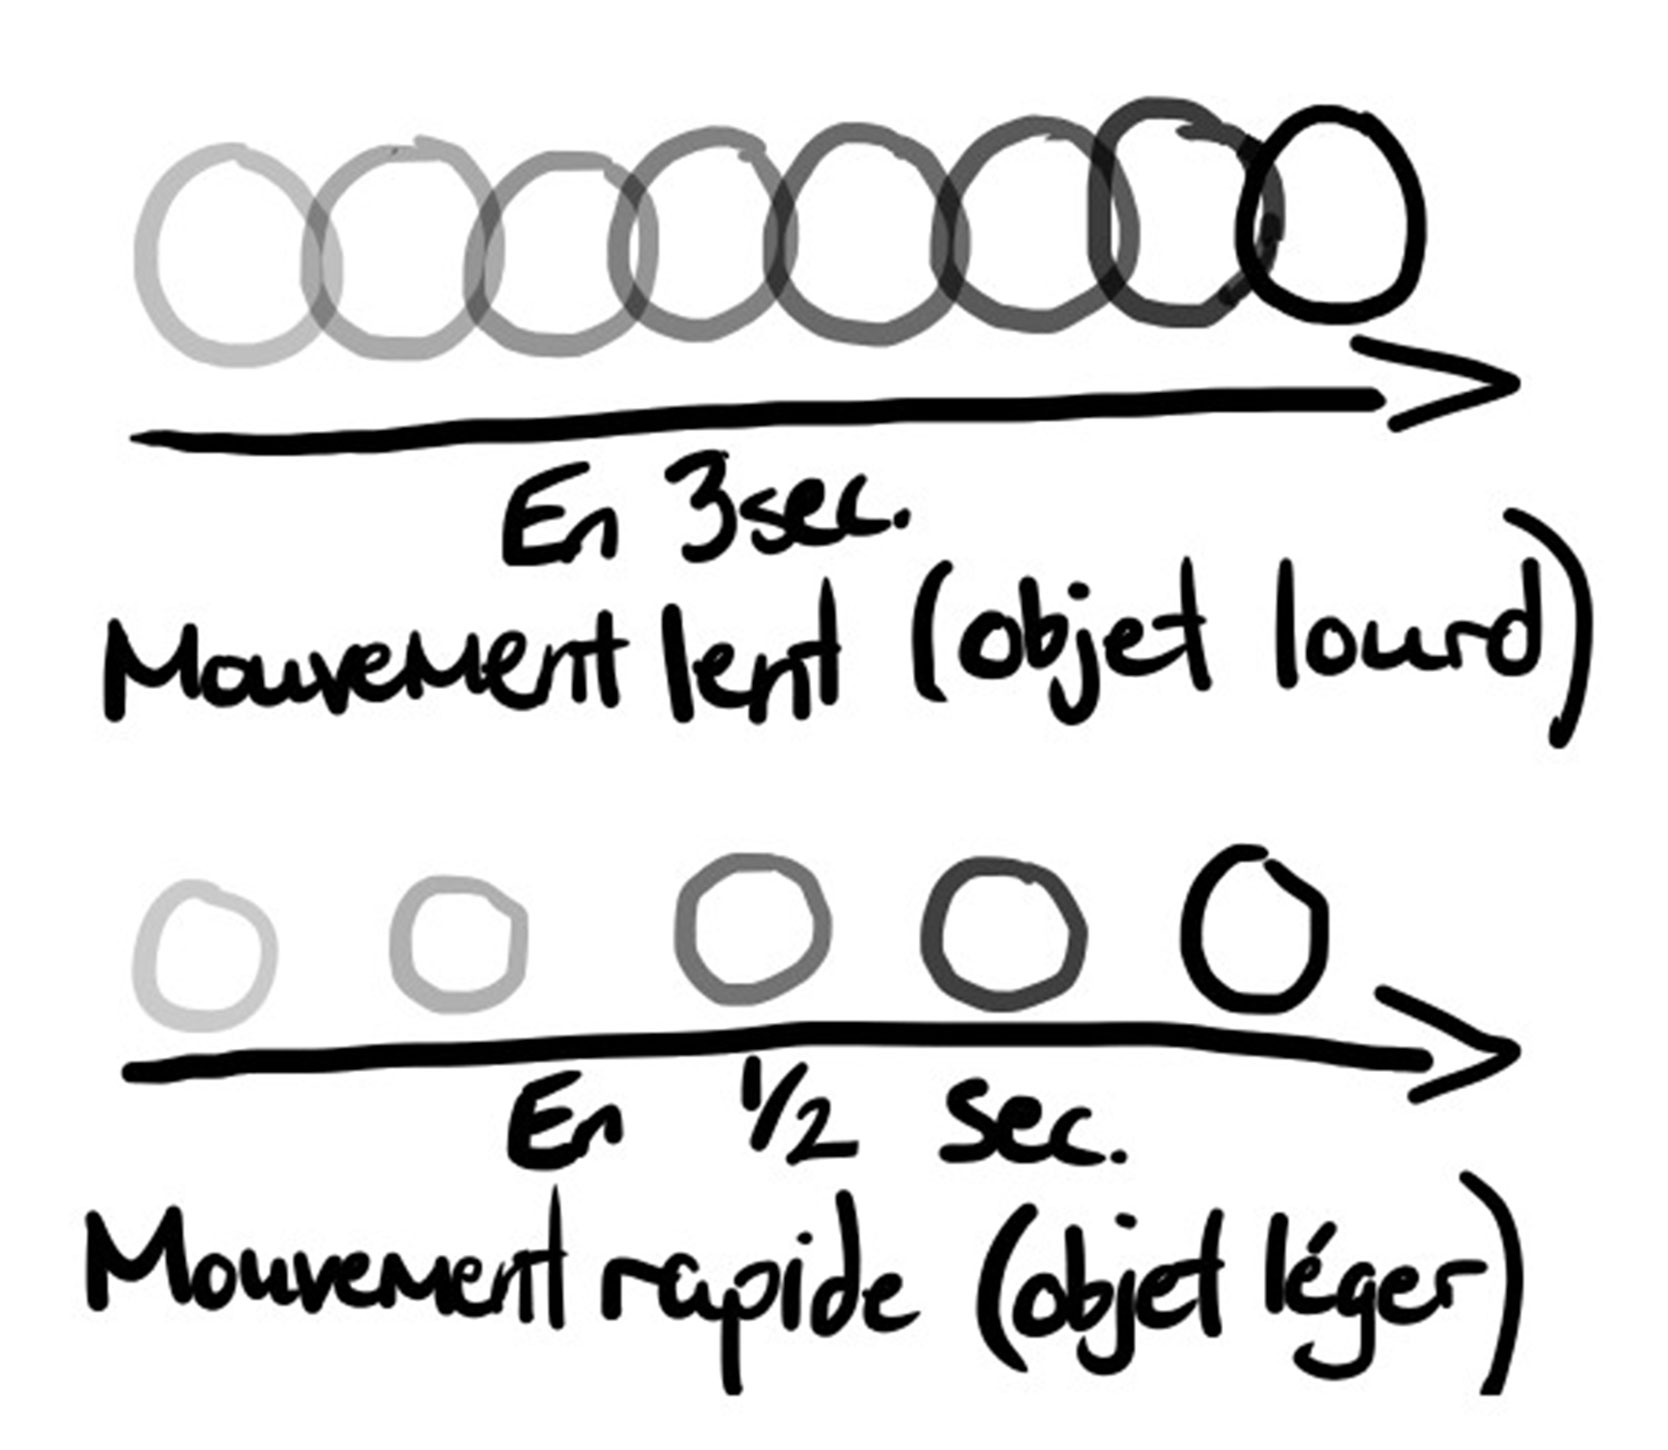 En 3sec.
Mouvement lent (objet lourd)
En 1/2 sec.
Mouvement rapide (objet léger)